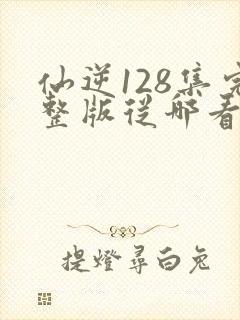 仙逆128集完
整版從哪看
提燈尋白兔